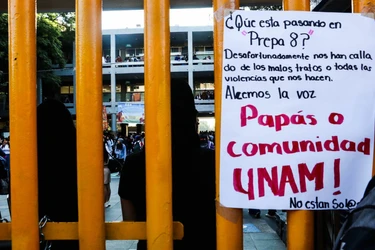 ¿Qúe esta pasando en
"Prepa 8"?
Desafortunadamente nos han calla
do de los malos tratos o todas las
violencias que nos hacen.
Alcemos la voz
Papás o
comunidad
UNAM!
No estan Sol@s